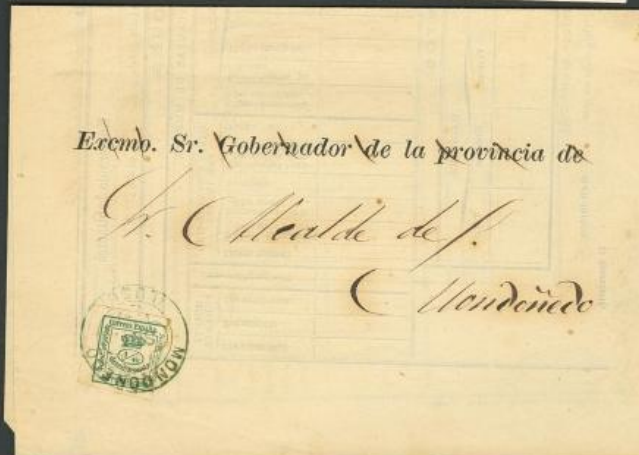 Excmo. Sr. Gobernador de la provincia de
Sr. Alcalde de
Mondoñedo
CORREOS ESPAÑA
MONDOÑEDO